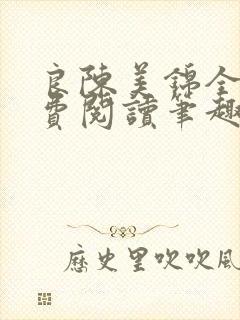 良陳美錦全
費閱讀筆趣
歷史里吹吹風